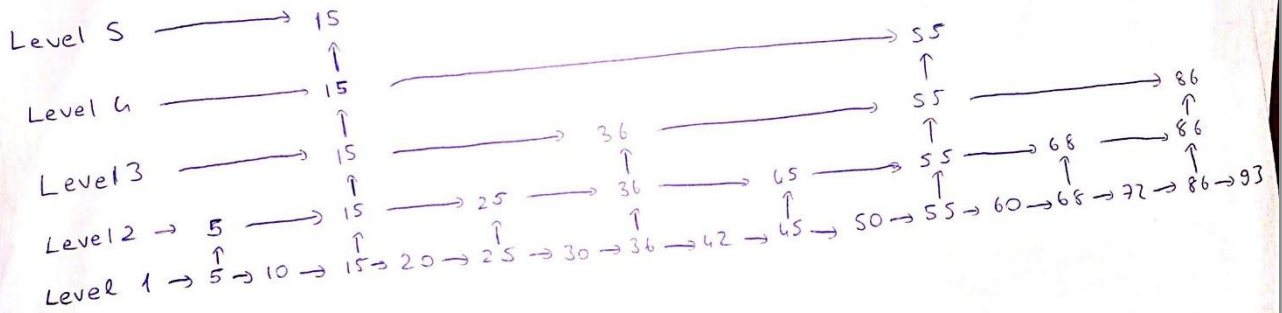 Level 5 → 15
Level 4 → 15 → 55
Level 3 → 15 → 36 → 55 → 86
Level 2 → 5 → 15 → 25 → 36 → 45 → 55 → 68 → 86
Level 1 → 5 → 10 → 15 → 20 → 25 → 30 → 36 → 42 → 45 → 50 → 55 → 60 → 68 → 72 → 86 → 93